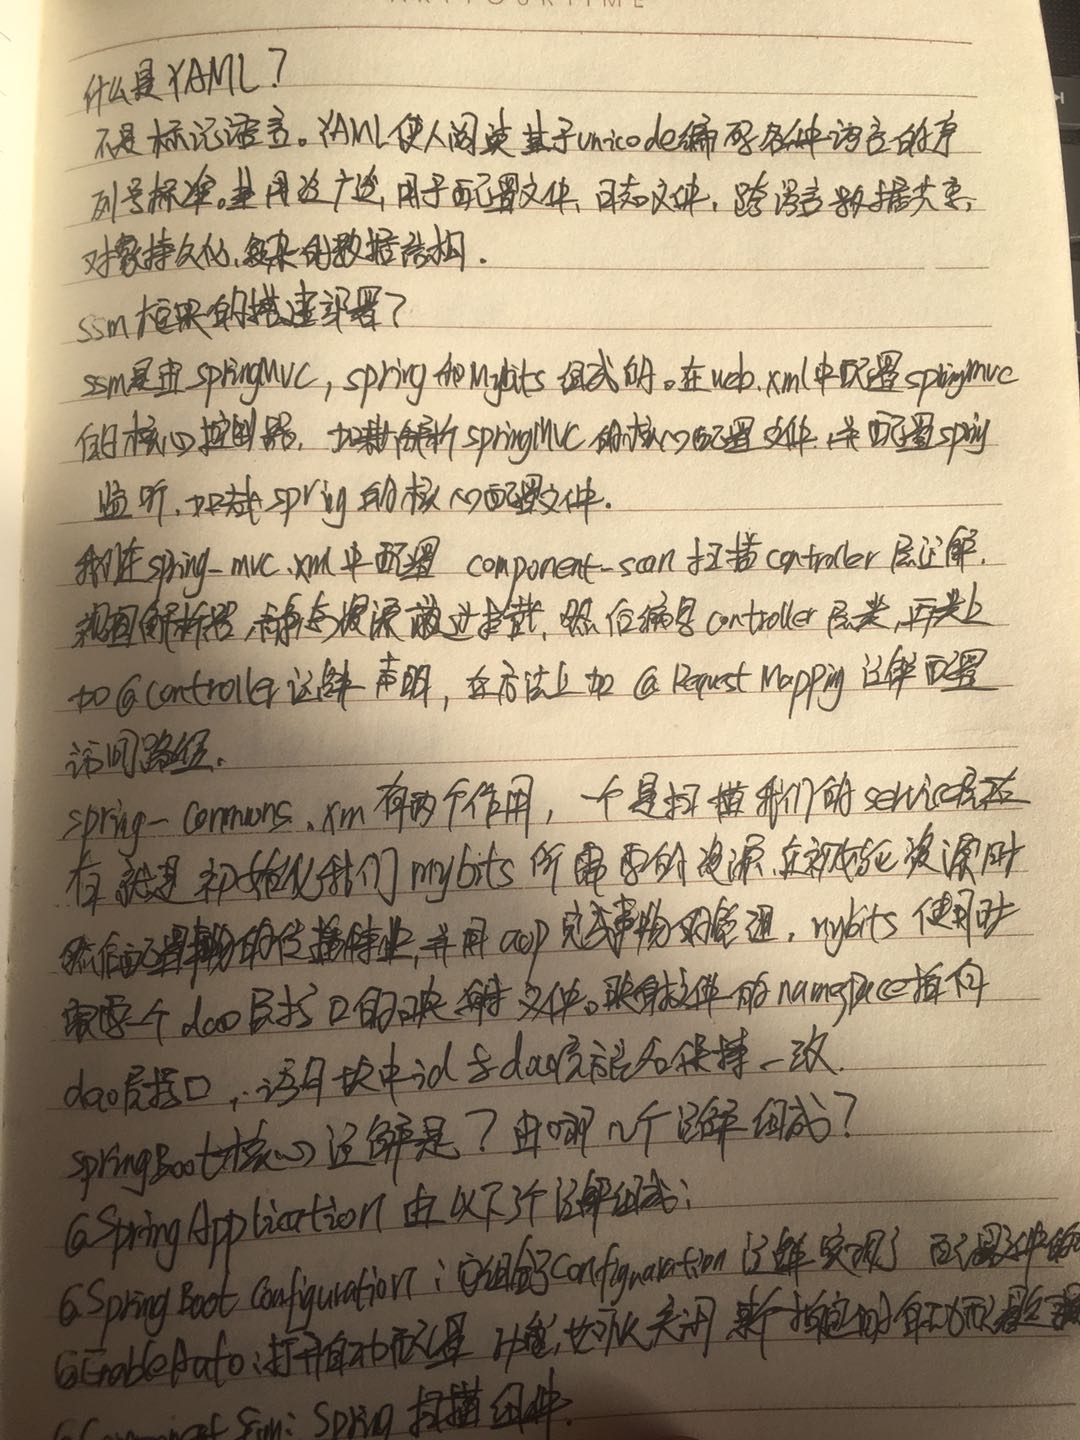 什么是YAML?
不是标记语言。YAML使人阅读基于unicode编码各种语言的序
列号标准。并用途广泛,用于配置文件、日志文件、跨语言数据共享、
对象持久化、复杂的数据结构.
ssm框架的搭建部署?
ssm是由springMVC,spring和Mybits组成的。在web.xml中配置springmvc
的核心控制器,加载解析springMVC的核心配置文件.并配置spring
监听.加载spring的核心配置文件.
我们在spring-mvc.xml中配置 component-scan扫描controller层注解.
视图解析器,静态资源放过拦截.然后编写controller层类,再类上
加@controller注解声明,在方法上加 @RequestMapping注解配置
访问路径.
spring-commons.xm有两个作用,一个是扫描我们的service层还
有就是初始化我们mybits所需要的资源.在初始化资源时
然后配置事物的传播特性,并用aop完成事物的管理.mybits使用时
需要一个dao层接口的映射文件。映射文件的namespace指向
dao层接口,语句块中id与dao层方法名保持一致.
springBoot核心注解是?由哪几个注解组成?
@SpringApplication由以下3个注解组成:
@SpringBootConfiguration:它组合了Configuaration注解实现了配置文件的
@EnableAuto:打开自动配置功能,也可以关闭某个指定的自动配置
Spring扫描组件.